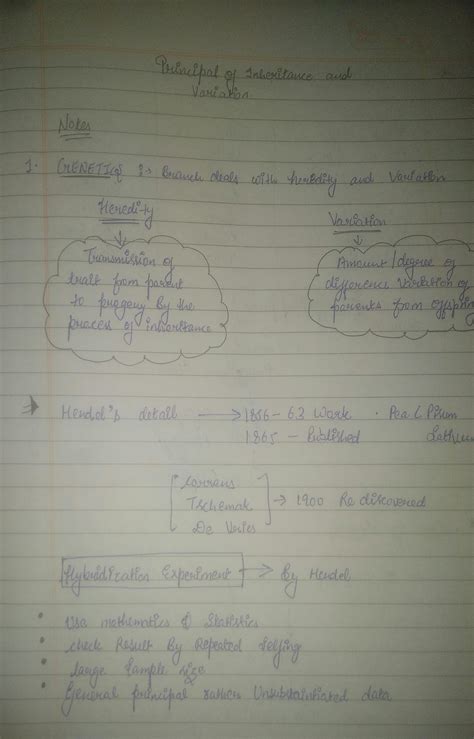 Principal of Inheritance and
Variation
Notes
1. GENETICS :-> Branch deals with heridity and Variation
Heredity
Variation
Transmission of
trait from parent
to progeny by the
proces of inheritance
Amount/degree of
difference variation of
parents from ofspring
Mendel's detail → 1856-63 Work · Pea (Pisum
1865 - Published
Correns
Tschemak
De Veries
→ 1900 Re discovered
Hybridization Experiment → By Mendel
• Use mathematics & Statistics
• check Result By Repeated Selfing
• Large Sample size
• General principal rather Unsubstaintiated data